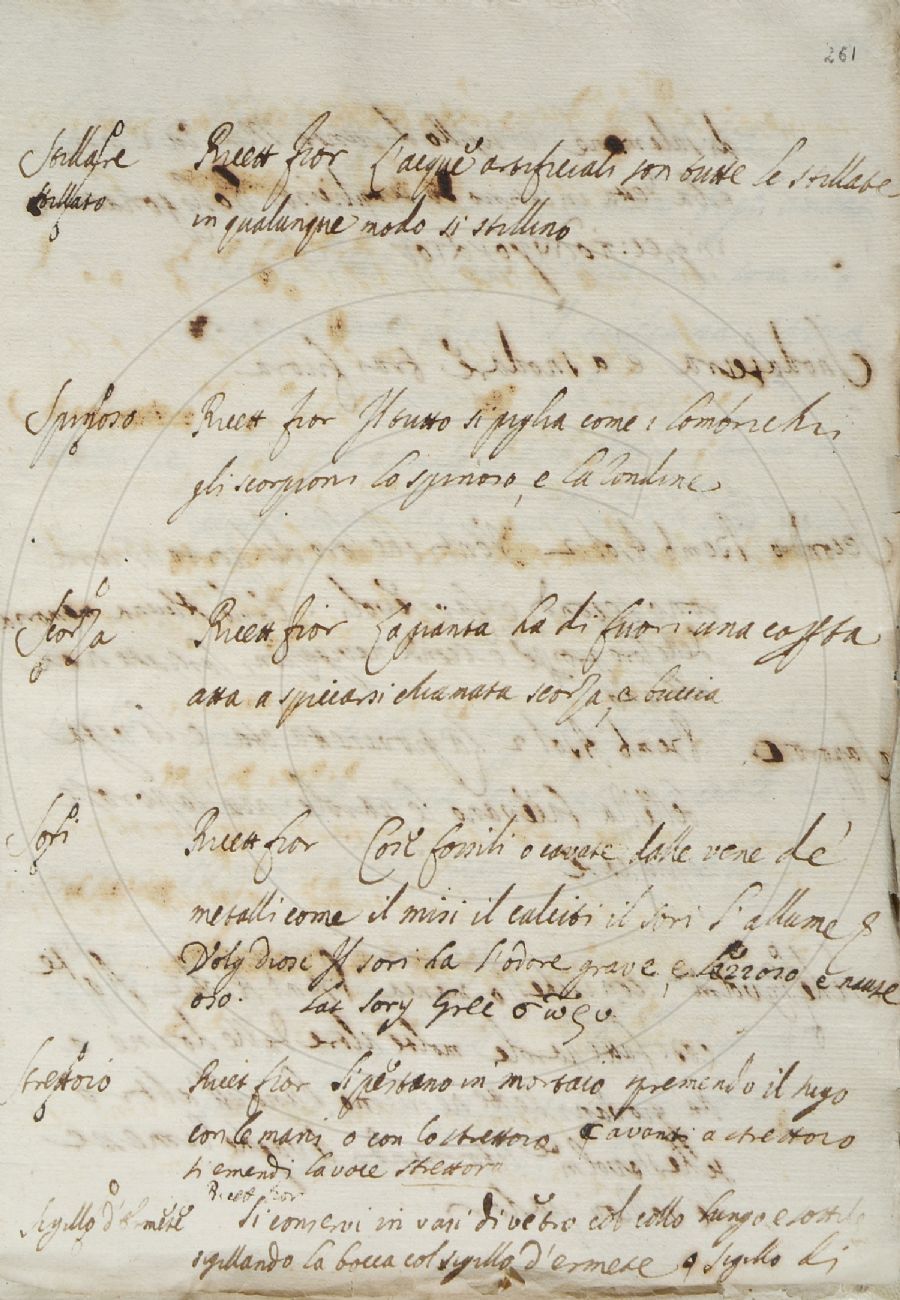 261
Stillare Ricett fior L'acque artificiali son tutte le stillate
stillato in qualunque modo si stillino
Spinoso Ricett fior Il tutto si piglia come i lombrichi
gli scorpioni lo spinoso, e la rondine
Scorza Ricett fior La pianta ha di fuori una
atta a spiccarsi chiamata scorza, e buccia
Sori Ricett fior Cose fossili o cavate dalle vene de'
metalli come il misi il calciti il sori l'allume
Volg Diosc Il sori ha l'odore grave, e lezzoso e nause
oso. Lat Sory Grec σῶρυ
Strettoio Ricett fior Si pestano in mortaio spremendo il sugo
con le mani o con lo strettoio, avanti a strettoio
si emendi la voce strettora
Ricett fior
Sigillo d'Ermete Si conservi in vasi di vetro col collo lungo e sottile
sigillando la bocca col sigillo d'ermete o sigillo di